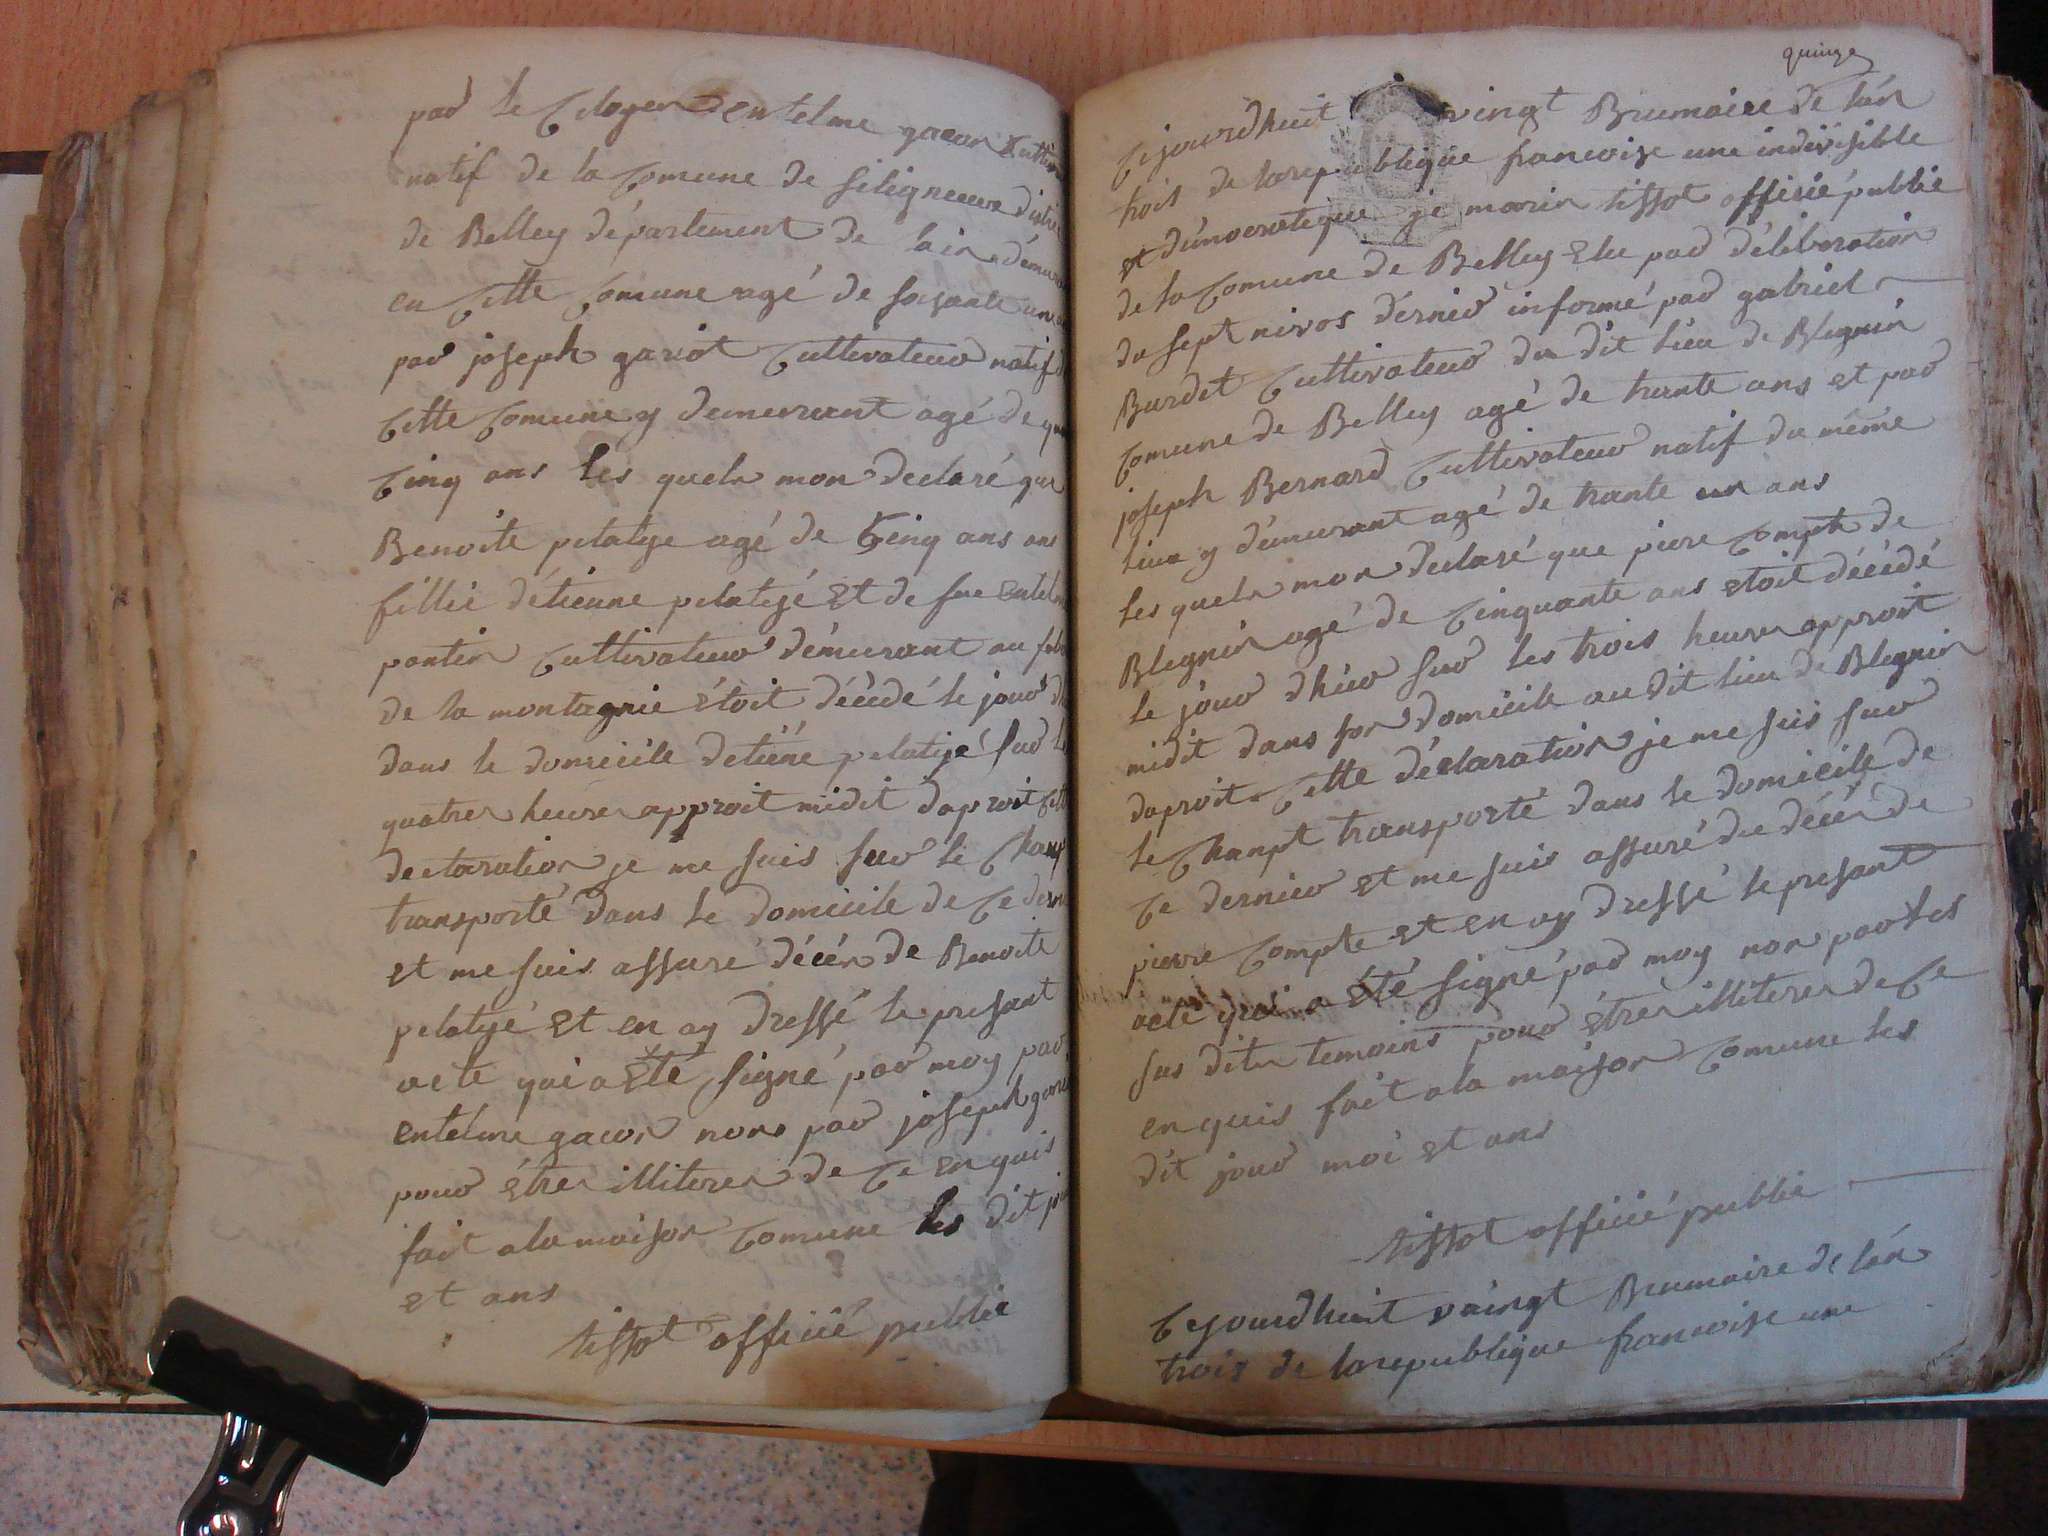 par le Citoyen entelme gacon Cultiv
natif de la Comune de Silignieux distri
de Belley département de lain démura
en Cette Comune agé de soisante un
par joseph gariot Cultivateur natif d
Cette Comune y demeurant agé de qua
Cinq ans les quels mon declaré que
Benoite pelatye agé de Cinq ans
fillie détienne pelatyé et de fue entelm
pontin Cultivateur démeurant au fub
de la montagnie étoit décédé le jour d
dans le domicile detiéne pelatyé sur le
quatres heures approit midit daproit Cett
declaration je me suis sur le Champ
transporté dans le domicile de Ce dern
et me suis assuré décés de Benoite
pelatyé et en ay dressé le presant
acte qui a été signé par moy par
entelme gacon non par joseph gario
pour étres illiteres de Ce en quis
fait a la maison Comune les dit jou
et ans
tissot officié public
quinze
Cejourdhuit vingt Brumaire de lán
trois de larepublique francoise une indivisible
et démocratique je marin tissot officié public
de la Comune de Belley Elu par déliberation
du sept nivos dérnier informé par gabriel
Burdet Cultivateur du dit lieu de Blegnin
Comune de Belley agé de trante ans et par
joseph Bernard Cultivateur natif du méme
lieu y démeurant agé de trante un ans
les quels mon declaré que piere Compte de
Blegnin agé de Cinquante ans etoit décédé
le jour dhier sur les trois heures approit
midit dans son domicile au dit lieu de Blegnin
daproit Cette déclaration je me suis sur
le Champt transporté dans le domicile de
Ce dernier et me suis assuré du décés de
pierre Compte et en ay dressé le presant
acte qui a été signé par moy non par les
sus dits temoins pour étres illiteres de Ce
en quis fait a la maison Comune les
dit jour moi et ans
tissot officié public
Cejourdhuit vaingt Brumaire de lán
trois de larepublique francoise une